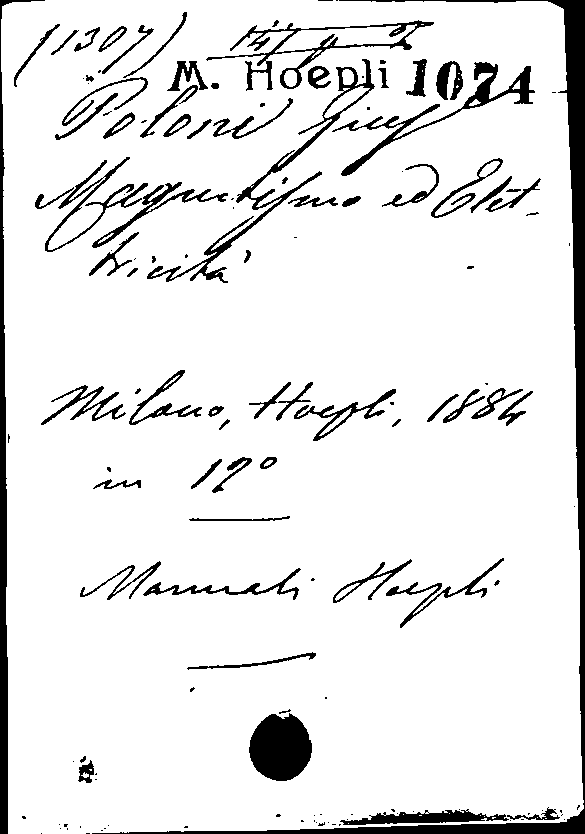 (1307)
M. Hoepli 1074
Poloni Gius
Magnetismo ed Elet-
tricità
Milano, Hoepli, 1884
in 12°
Manuali Hoepli